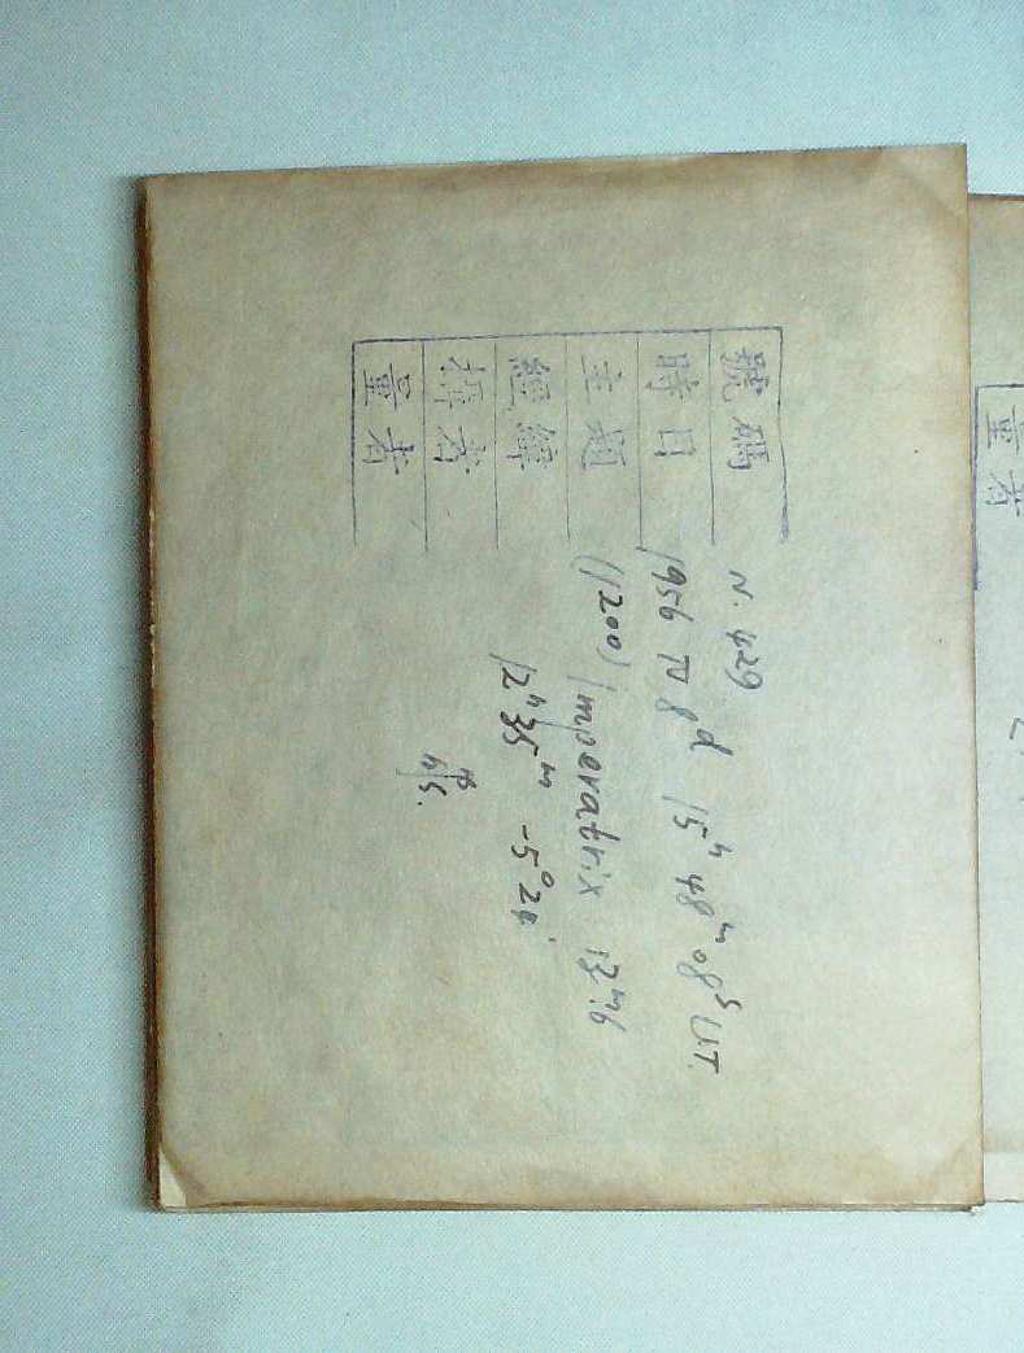 號碼 N. 429
時日 1956 IV 8d 15h 48m 08s UT.
主題 (1200) Imperatrix 13m.6
經緯 12h 35m -5° 24'
攝者
量者
量者